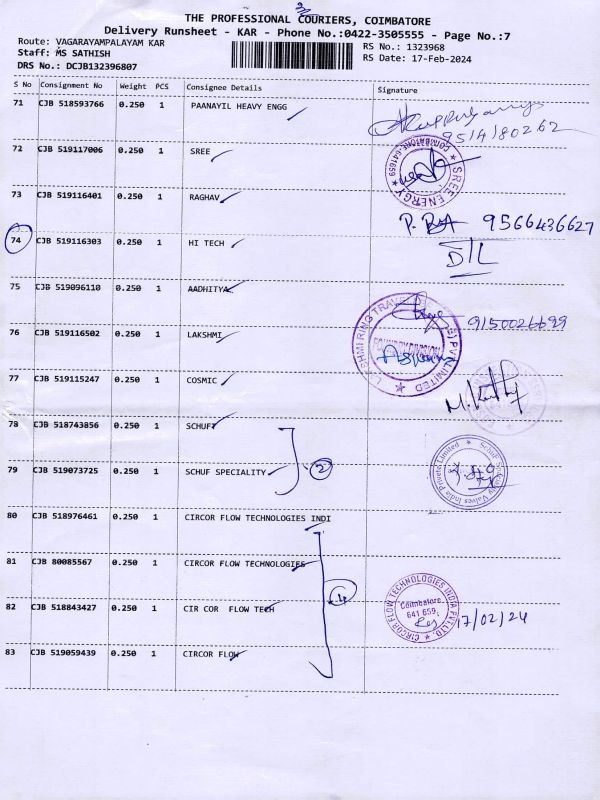 THE PROFESSIONAL COURIERS, COIMBATORE
Delivery Runsheet - KAR - Phone No.:0422-3505555 - Page No.:7
Route: VAGARAYAMPALAYAM KAR
RS No.: 1323968
Staff: MS SATHISH
RS Date: 17-Feb-2024
DRS No.: DCJB132396807
S No Consignment No Weight PCS Consignee Details Signature
71 CJB 518593766 0.250 1 PAANAYIL HEAVY ENGG
95/4/80262
72 CJB 519117006 0.250 1 SREE
SREE ENERGY COIMBATORE-641659
73 CJB 519116401 0.250 1 RAGHAV
9566436627
74 CJB 519116303 0.250 1 HI TECH
D/L
75 CJB 519096110 0.250 1 AADHITYA
9150026699
76 CJB 519116502 0.250 1 LAKSHMI
77 CJB 519115247 0.250 1 COSMIC
78 CJB 518743856 0.250 1 SCHUF
79 CJB 519073725 0.250 1 SCHUF SPECIALITY 2
Schuf Speciality Valves India Private Limited
80 CJB 518976461 0.250 1 CIRCOR FLOW TECHNOLOGIES INDI
81 CJB 80085567 0.250 1 CIRCOR FLOW TECHNOLOGIES
4
82 CJB 518843427 0.250 1 CIR COR FLOW TECH
CIRCOR FLOW TECHNOLOGIES INDIA PVT LTD
Coimbatore
641 659.
17/02/24
83 CJB 519059439 0.250 1 CIRCOR FLOW